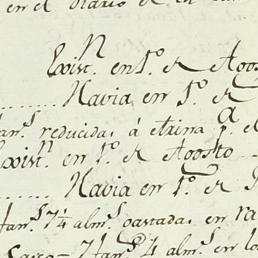 en el Diario de
Exist.ⁿ en 1.º de Agos
Havia en 1.º de
fan.ˢ reducidas á etrina p.ª el
Exist.ⁿ en 1.º de Agosto
Havia en 1.º de
fan.ˢ 7¼ alm.ˢ gastadas en
7 fan.ˢ 4 alm.ˢ en lo